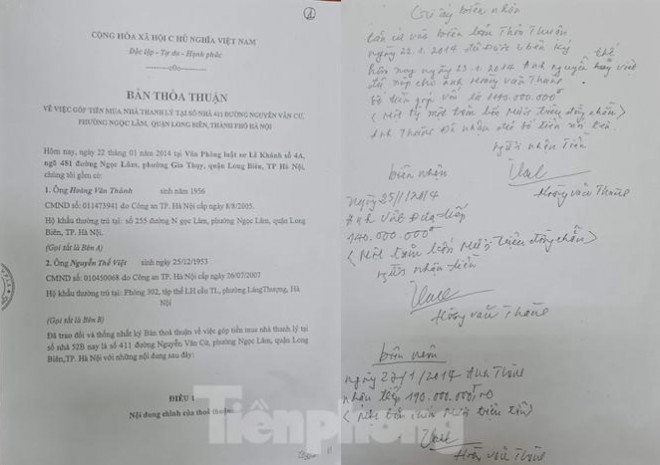 CỘNG HÒA XÃ HỘI CHỦ NGHĨA VIỆT NAM
Độc lập - Tự do - Hạnh phúc
BẢN THỎA THUẬN
VỀ VIỆC GÓP TIỀN MUA NHÀ THANH LÝ TẠI SỐ NHÀ 411 ĐƯỜNG NGUYỄN VĂN CỪ,
PHƯỜNG NGỌC LÂM, QUẬN LONG BIÊN, THÀNH PHỐ HÀ NỘI
Hôm nay, ngày 22 tháng 01 năm 2014 tại Văn Phòng luật sư Lê Khánh số 4A,
ngõ 481 đường Ngọc Lâm, phường Gia Thụy, quận Long Biên, TP Hà Nội,
chúng tôi gồm có:
1. Ông Hoàng Văn Thành sinh năm 1956
CMND số: 011473941 do Công an TP. Hà Nội cấp ngày 8/8/2005.
Hộ khẩu thường trú tại: số 255 đường N gọc Lâm, phường Ngọc Lâm, quận Long
Biên, TP. Hà Nội.
(Gọi tắt là Bên A)
2. Ông Nguyễn Thế Việt sinh ngày 25/12/1953
CMND số: 010450068 do Công an TP. Hà Nội cấp ngày 26/07/2007
Hộ khẩu thường trú tại: Phòng 302, tập thể LH cầu TL, phường LángThượng, Hà
Nội
(Gọi tắt là Bên B)
Đã trao đổi và thống nhất ký Bản thoả thuận về việc góp tiền mua nhà thanh lý tại
số nhà 52B nay là số 411 đường Nguyễn Văn Cừ, phường Ngọc Lâm, quận Long
Biên,TP. Hà Nội với những nội dung sau đây:
ĐIỀU 1
Nội dung chính của thoả thuận
Giấy biên nhận
Căn cứ vào biên bản Thỏa Thuận
ngày 22.1.2014 đã được ký
Hôm nay ngày 23.1.2014 Anh nguyễn thế việt
nộp cho anh Hoàng văn Thành
số tiền góp vốn là 140.000.000đ
(Một trăm bốn mươi triệu đồng chẵn)
Anh Thành đã nhận đủ số tiền trên.
người nhận tiền
Hoàng văn Thành
biên nhận
ngày 25/1/2014
Anh việt tiếp
140.000.000đ
(Một trăm bốn mươi triệu đồng chẵn)
người nhận tiền
Hoàng văn Thành
biên nhận
ngày 27/1/2014 Anh Thành
nhận tiếp 190.000.000đ
Hoàng văn Thành
Tiền phong